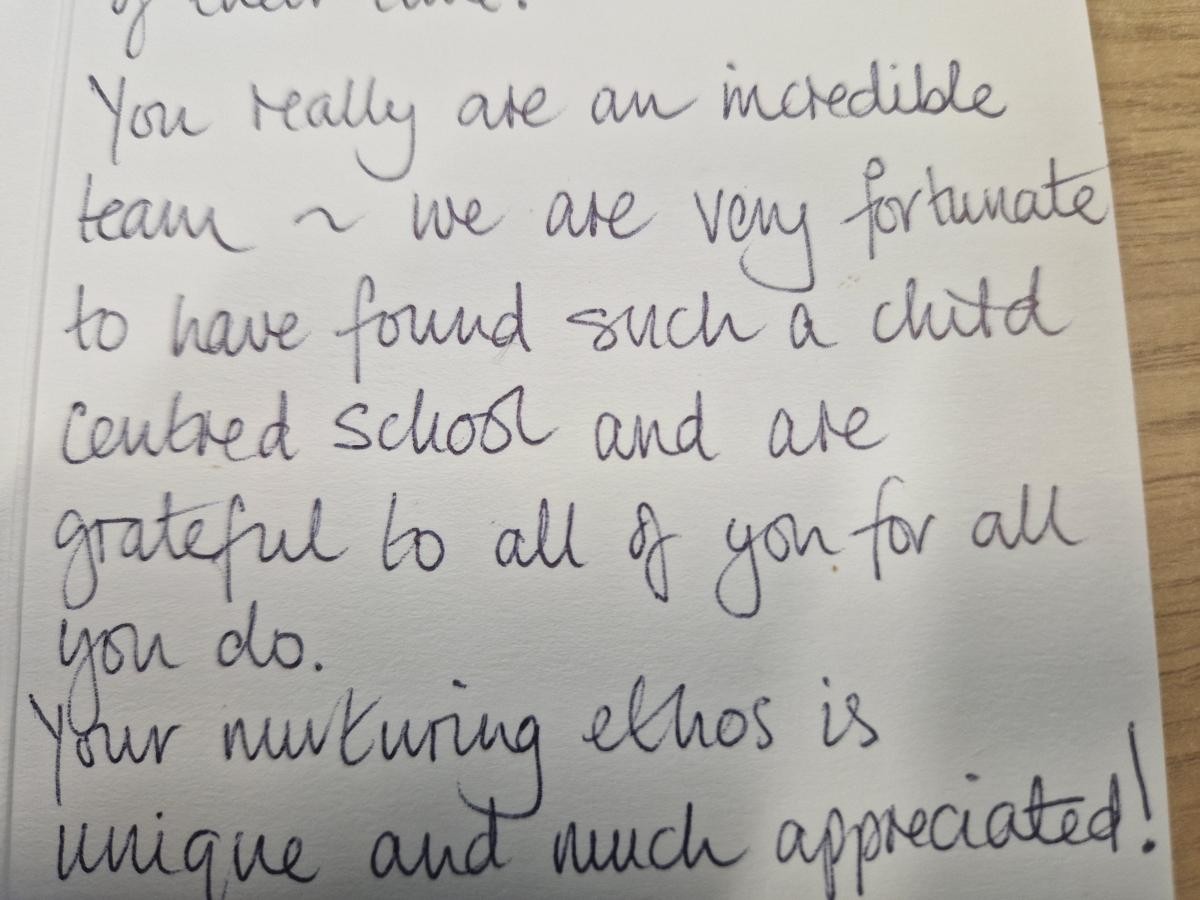 of their
You really are an incredible
team ~ we are very fortunate
to have found such a child
centred school and are
grateful to all of you for all
you do.
Your nurturing ethos is
unique and much appreciated!